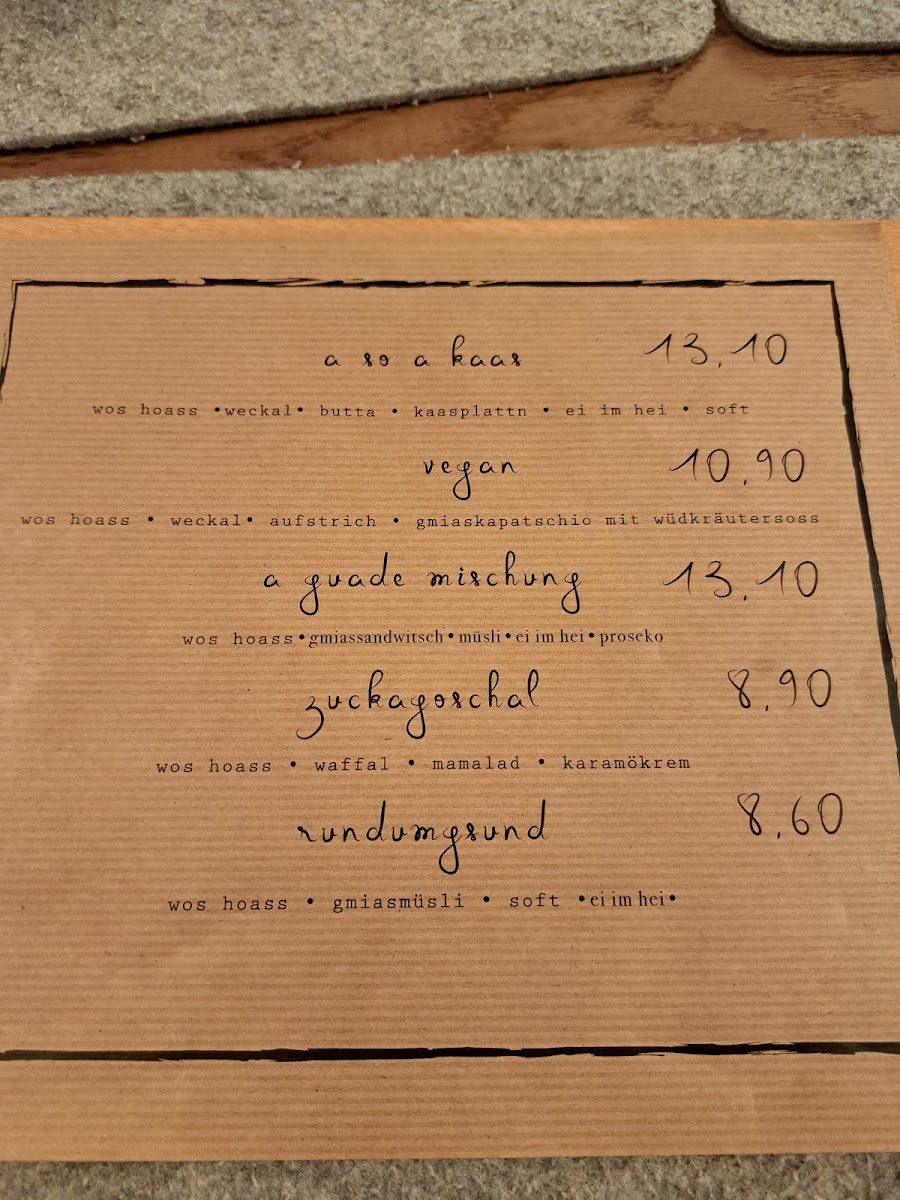 a so a kaas 13,10
wos hoass •weckal• butta • kaasplattn • ei im hei • soft
vegan 10,90
wos hoass • weckal• aufstrich • gmiaskapatschio mit wüdkräutersoss
a guade mischung 13,10
wos hoass•gmiassandwitsch•müsli•ei im hei•proseko
zuckagoschal 8,90
wos hoass • waffal • mamalad • karamökrem
rundumgsund 8,60
wos hoass • gmiasmüsli • soft •ei im hei•